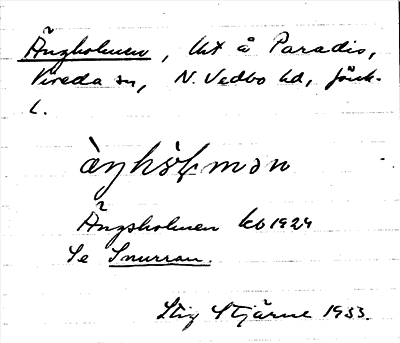 Ängholmen, lht å Paradis,
Vireda sn, N. Vedbo hd, Jönk.
L.
àŋhò̭ɫmən
Ängsholmen kb 1929
Se Snurran.
Stig Stjärne 1933.